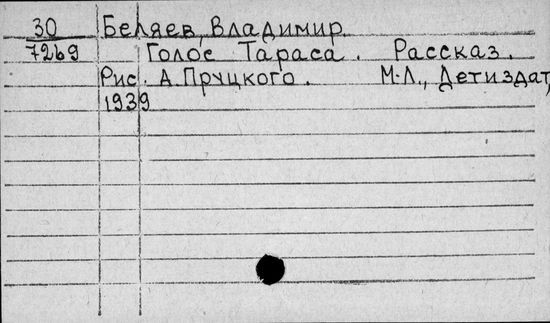 30 Беляев, Владимир.
7269 Голос Тараса. Рассказ.
Рис. А. Пруцкого. М-Л., Детиздат,
1939